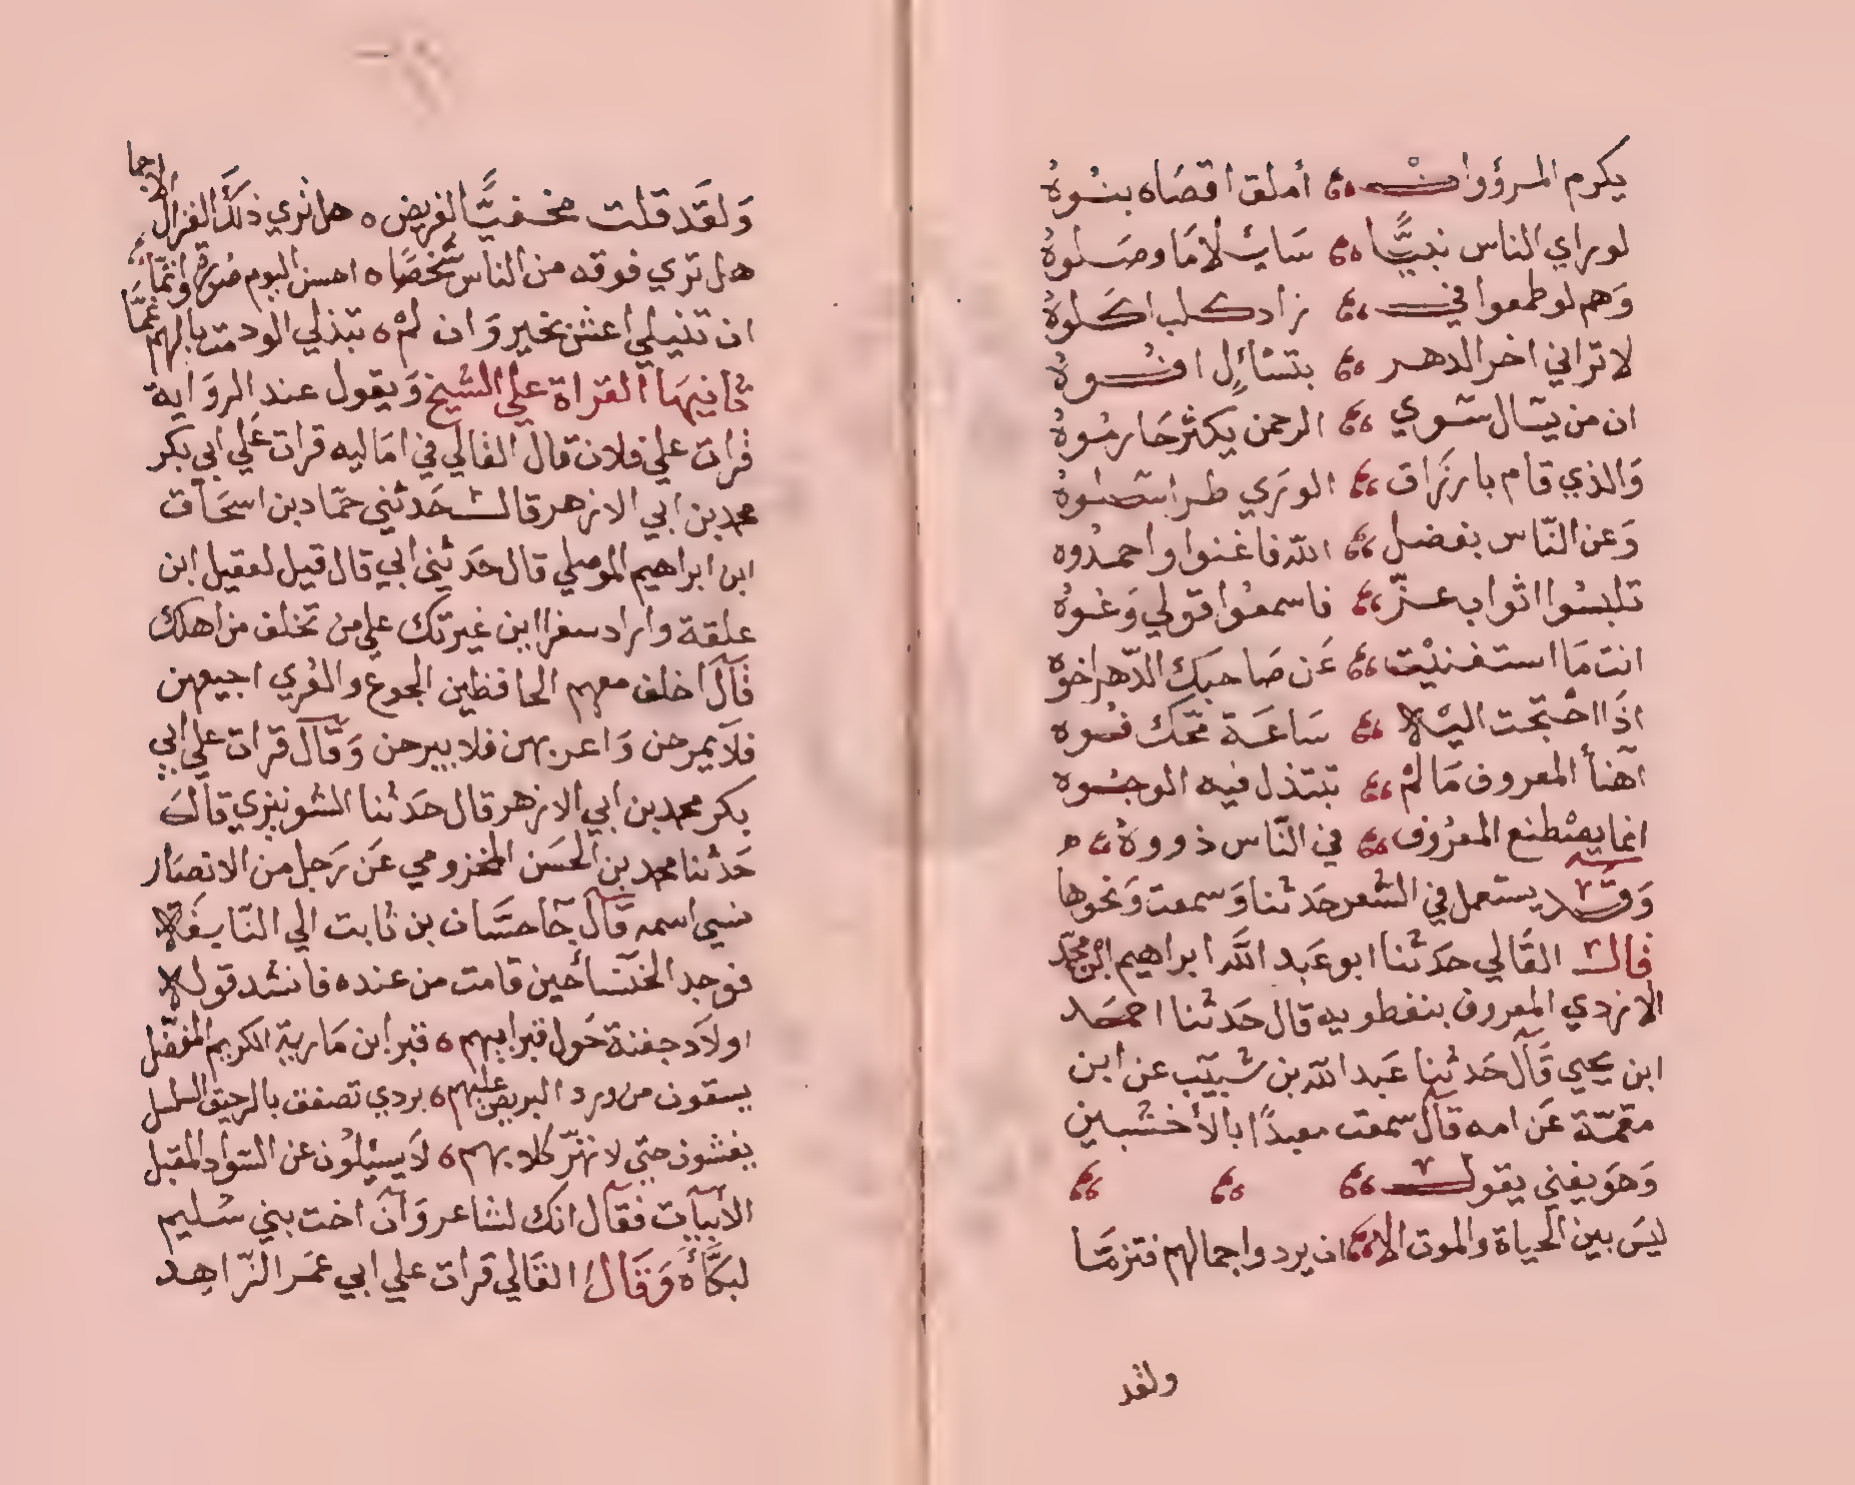 يكرم المرؤ وان أملق اقصاه بنوه
لو راي الناس نبيًّا سايلا ما وصلوه
وهم لو طمعوا في زاد كلب اكلوه
لا تراني اخر الدهر بتسائل افوه
ان من يسال سوي الرحمن يكثر حارموه
والذي قام بارزاق الوري طرا سلوه
وعن الناس بفضل الله فاغنوا واحمدوه
تلبسوا اثواب عز فاسمعوا قولي وعوه
انت ما استغنيت عن صاحبك الدهر اخوه
اذا احتجت اليه ساعة مجك فوه
أهنأ المعروف ما لم تبتذل فيه الوجوه
انما يصطنع المعروف في الناس ذووه
وقد يستعمل في الشعر حدثنا وسمعت ونحوها
قال القالي حدثنا ابو عبد الله ابراهيم بن محمد
الازدي المعروف بنفطويه قال حدثنا احمد
ابن يحيي قال حدثنا عبد الله بن شبيب عن ابن
مقمة عن امه قال سمعت معبدًا بالأخشبين
وهو يغني يقول
ليس بين الحياة والموت الا ان يردوا جمالهم فتزما
ولقد
ولقد قلت مخفيًّا لغريض هل تري ذلك الغزال الاجما
هل تري فوقه من الناس شخصًا احسن اليوم صورة واتمّا
ان تنيلي اعش بخير وان لم تبذلي الود مت بالهم غمّا
ثانيها القراة علي الشيخ ويقول عند الرواية
قرات علي فلان قال القالي في اماليه قرات علي ابي بكر
محمد بن ابي الازهر قال حدثني حماد بن اسحاق
ابن ابراهيم الموصلي قال حدثني ابي قال قيل لعقيل ابن
علقة واراد سفرا اين غيرتك علي من تخلف من اهلك
قال اخلف معهم الحافظين الجوع والعري اجيعهن
فلا يمرحن واعريهن فلا يبرحن وقال قرات علي ابي
بكر محمد بن ابي الازهر قال حدثنا الشونيزي قال
حدثنا محمد بن الحسن المخزومي عن رجل من الانصار
نسي اسمه قال جا حسان بن ثابت الي النابغة
فوجد الخنسا حين قامت من عنده فانشد قوله
اولاد جفنة حول قبر ابيهم قبر ابن مارية الكريم المفضل
يسقون من ورد البريص عليهم بردي تصفق بالرحيق السلسل
يغشون حتي لا تهر كلابهم لا يسئلون عن السواد المقبل
الأبيات فقال انك لشاعر وان اخت بني سليم
لبكّأة وقال القالي قرات علي ابي عمر الزاهد